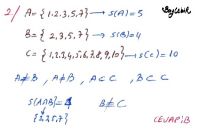 2/ A = {1,2,3,5,7} → s(A) = 5
B = {2,3,5,7} → s(B) = 4
C = {1,2,3,4,5,6,7,8,9,10} → s(C) = 10
A≠B, A≢B, A⊂C, B⊂C
s(A∩B) = 4 B≢C
{2,3,5,7}
CEVAP: B